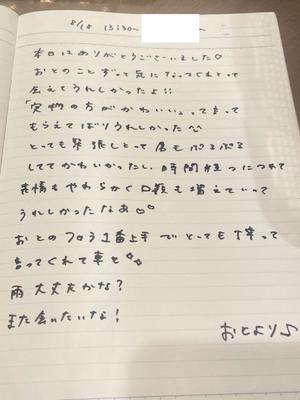 8/18 13:30~
本日はありがとうございました♡
おとのことずっと気になってくれとって
会えてうれしかったよ!!
「実物の方がかわいい」って言って
もらえてばりうれしかった^^
とっても緊張しとって唇もぷるぷる
しててかわいかったし、時間経つにつれて
表情もやわらかく口数も増えていって
うれしかったなあ♡♡
おとのフロう1番上手でとっても
言ってくれて幸せ♡♡
雨大丈夫かな?
また会いたいな!
おとより♪